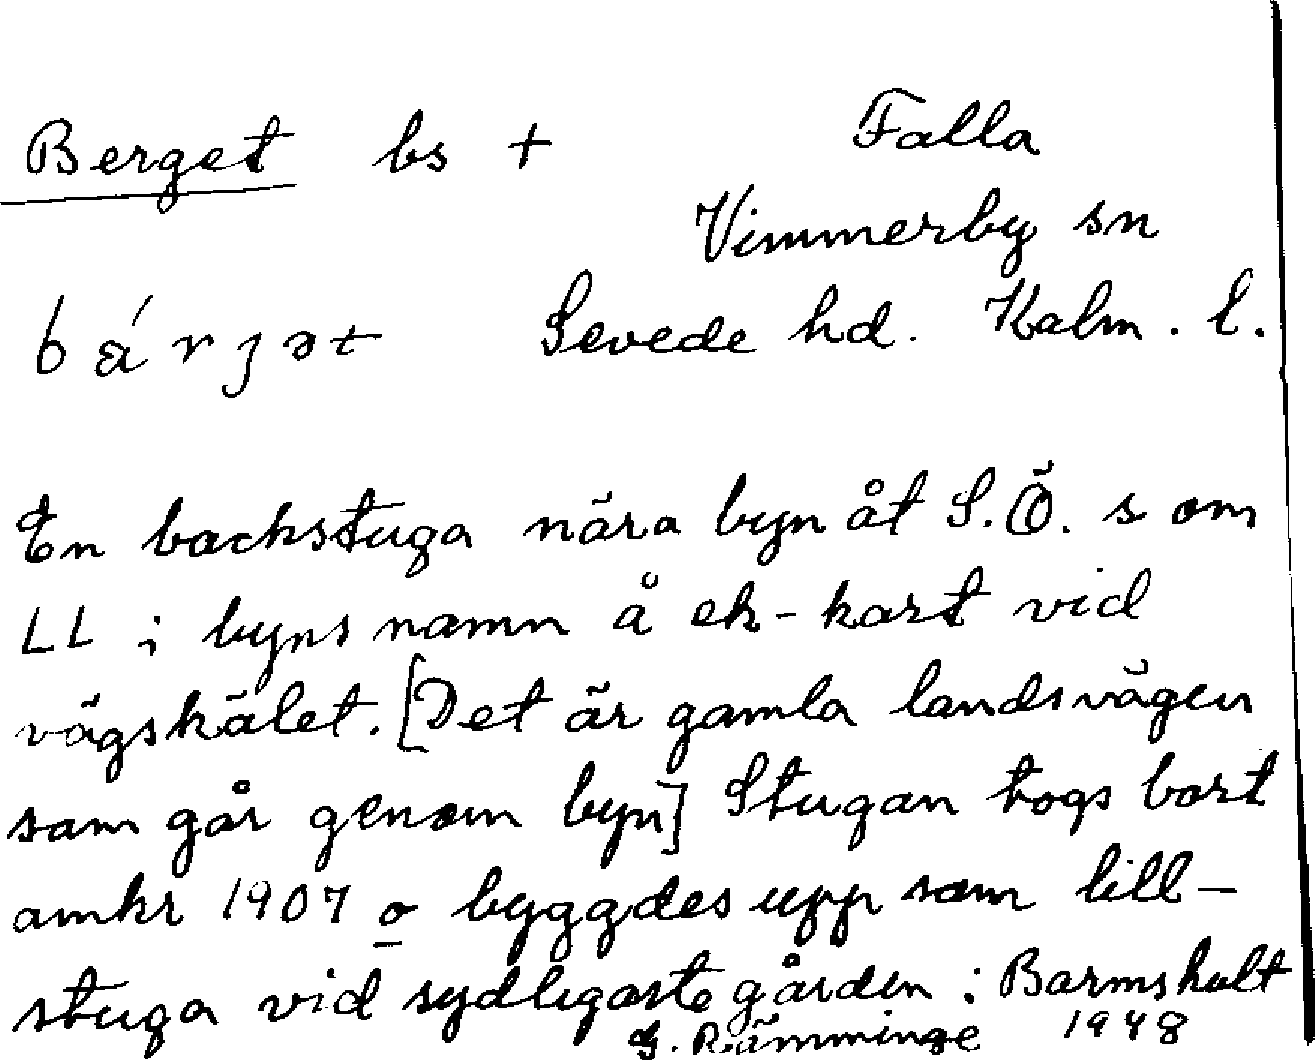 Berget bs + Falla
Vimmerby sn
bá̈rɟət Sevede hd. Kalm. l.
En backstuga nära byn åt S.Ö. s om
LL i byns namn å ek-kart vid
vägskälet. [Det är gamla landsvägen
som går genom byn] Stugan togs bort
omkr 1907 o byggdes upp som lill-
stuga vid sydligaste gården i Barmshult
G. Rämminge 1948